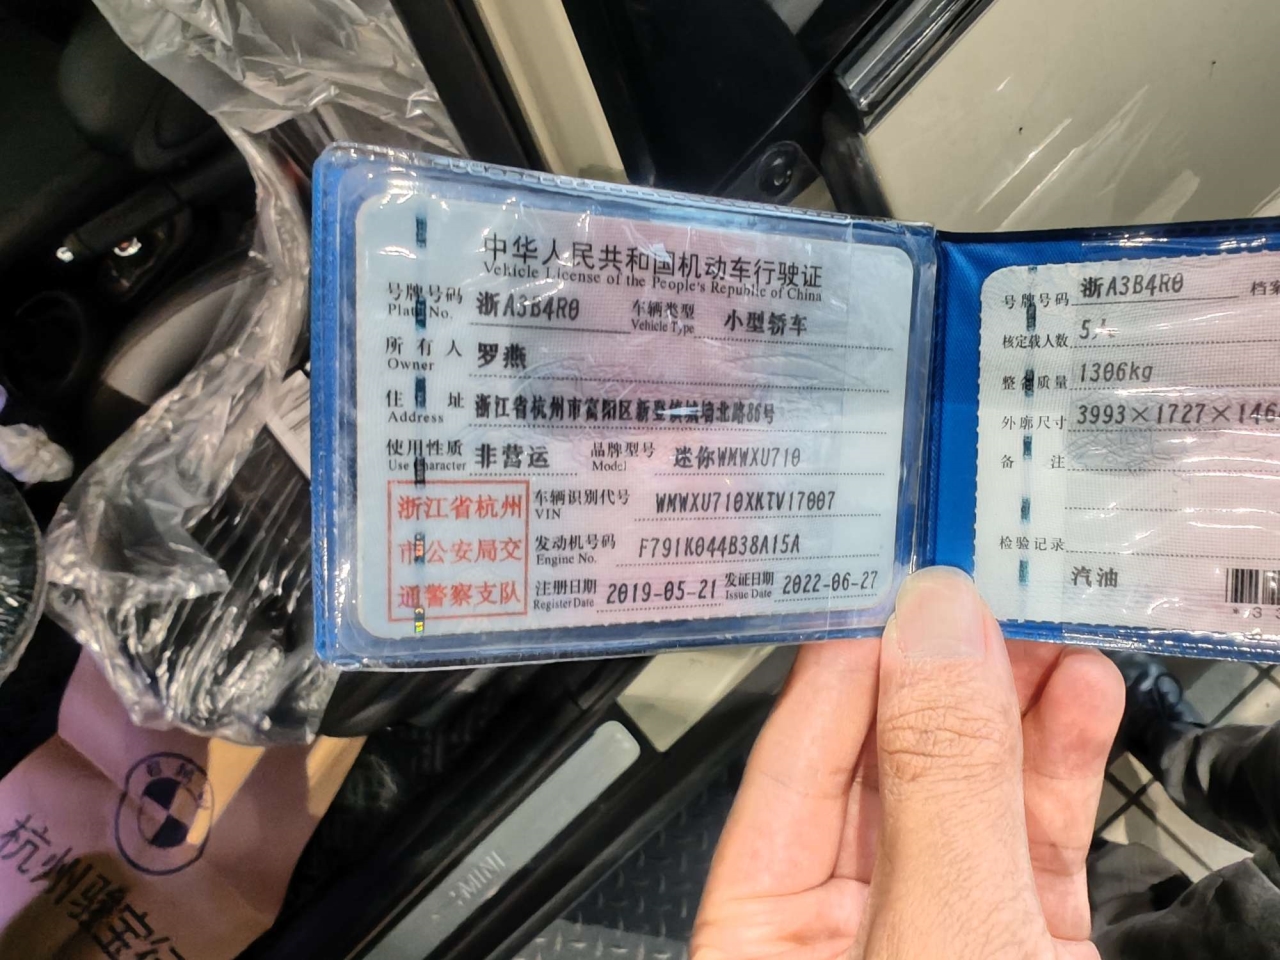 中华人民共和国机动车行驶证
Vehicle License of the People's Republic of China
号牌号码 浙A3B4R0 车辆类型 小型轿车
Plate No. Vehicle Type
所有人 罗燕
Owner
住址 浙江省杭州市富阳区新登镇城墙北路86号
Address
使用性质 非营运 品牌型号 迷你WMWXU710
Use Character Model
浙江省杭州
市公安局交
通警察支队
车辆识别代号 WMWXU710XKTV17007
VIN
发动机号码 F791K044B38A15A
Engine No.
注册日期 2019-05-21 发证日期 2022-06-27
Register Date Issue Date
号牌号码 浙A3B4R0 档案
核定载人数 5人
整备质量 1306kg
外廓尺寸 3993×1727×146
备注
检验记录
汽油
*73
MINI
杭州骏宝行